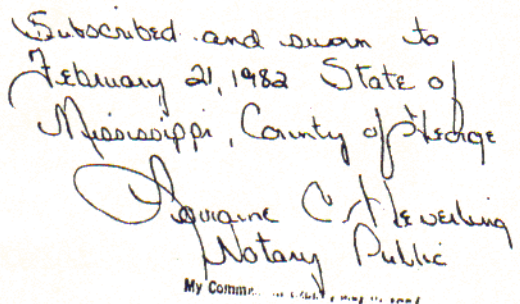 Subscribed and sworn to
February 21, 1982 State of
Mississippi, County of George
Lauraine C. Heverling
Notary Public
My Comm